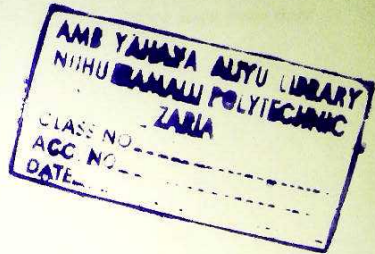 AMB YAHAYA ALIYU LIBRARY
NUHU BAMALLI POLYTECHNIC
ZARIA
CLASS NO
ACC. NO
DATE